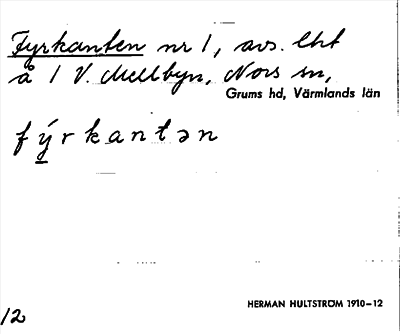 Fyrkanten nr 1, avs. lht
å 1 V. Mellbyn, Nors sn,
Grums hd, Värmlands län
fýrkantən
12
HERMAN HULTSTRÖM 1910–12